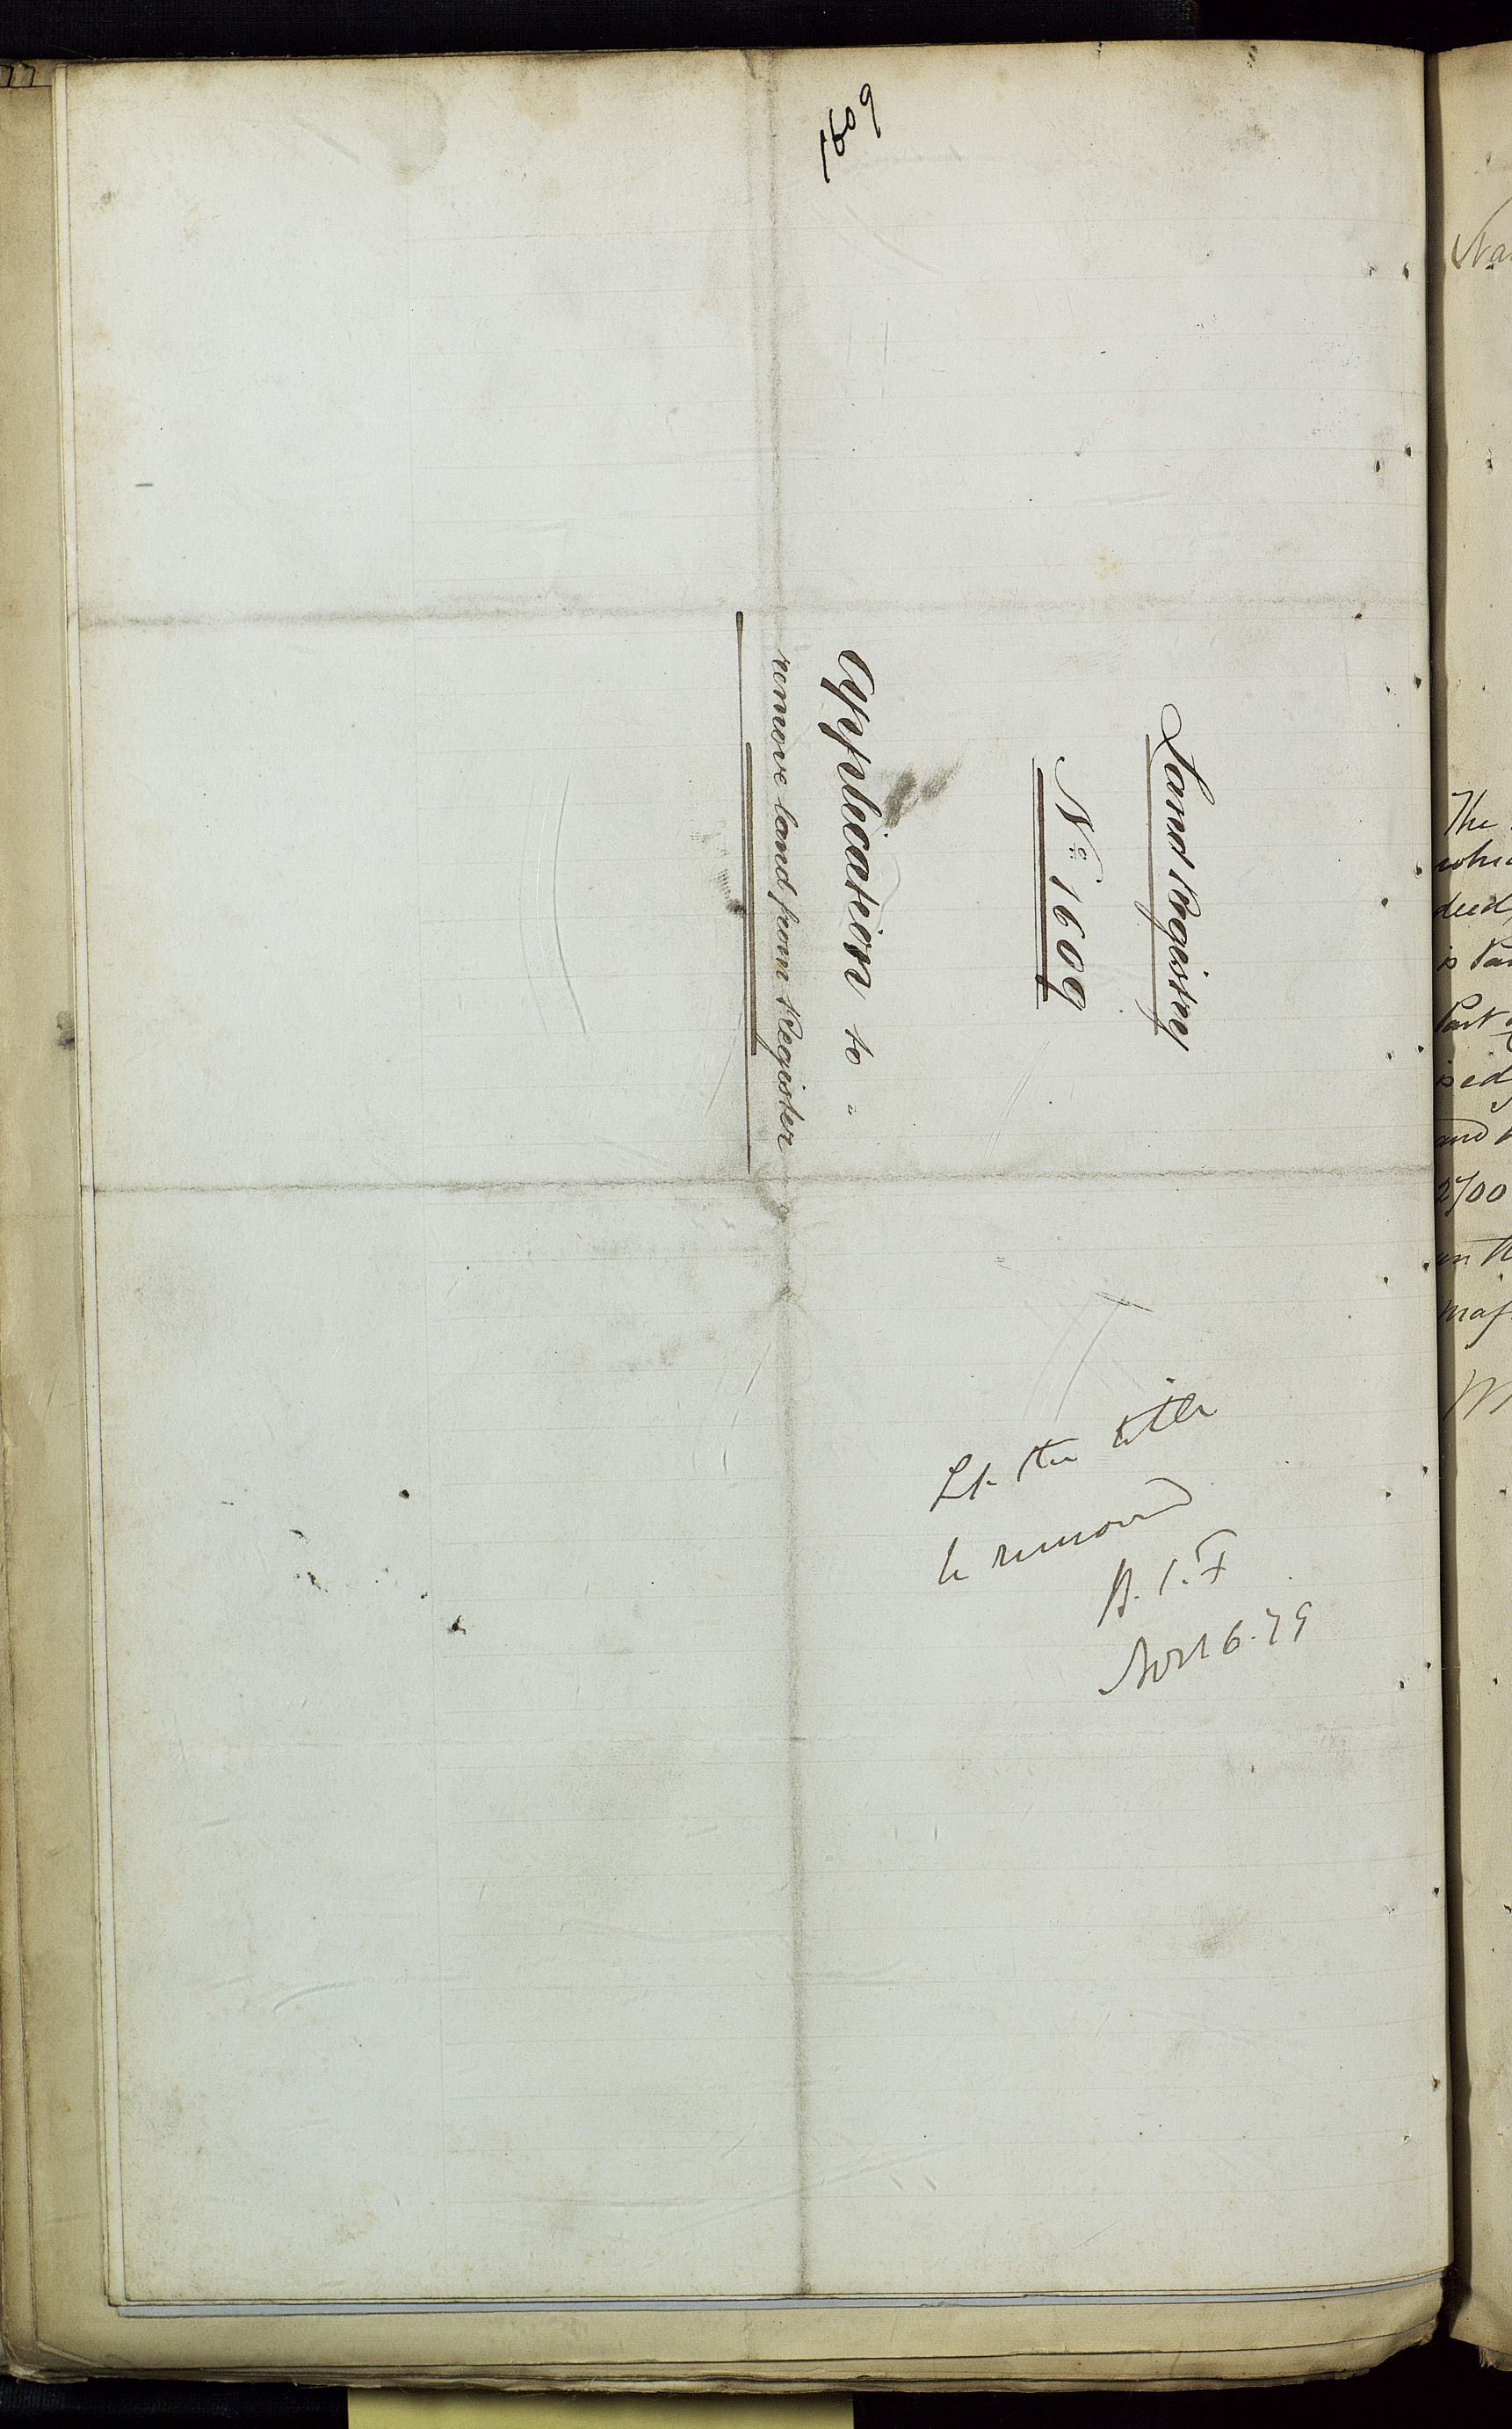 1609
Land Registry
No. 1609
Application to
remove land from Register
Let the title
be removed
Nov 6. 79
77
The
deed
is
Part
and
2700